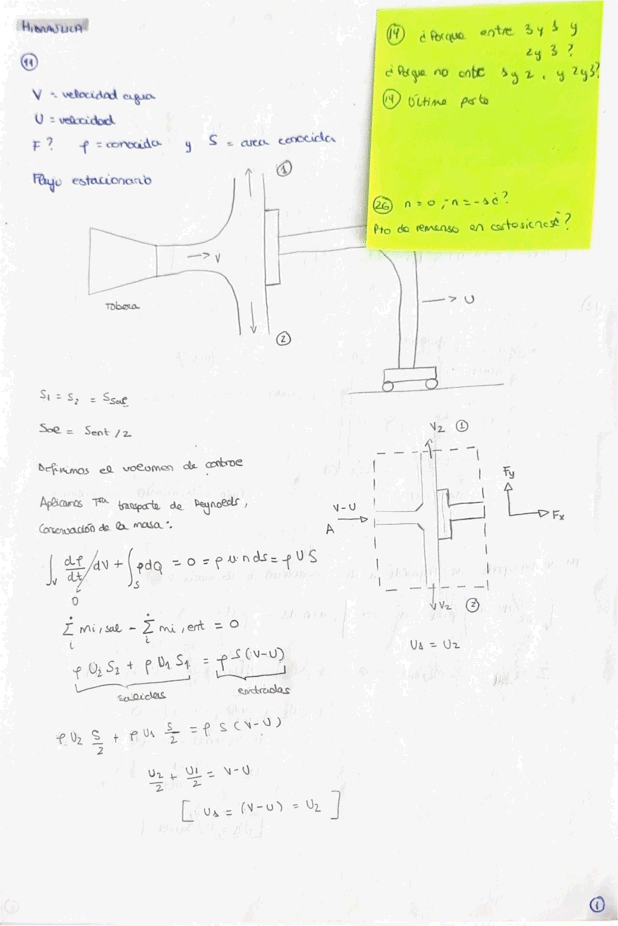 HIDRAULICA
11
V = velocidad agua
U = velocidad
F? ρ = conocida y S = area conocida
Flujo estacionario
1
→ V
Tobera
2
→ U
14 ¿Porque entre 3 y 1 y
2 y 3?
¿Porque no entre 1 y 2, y 2 y 3?
14 Última parte
26 n = 0, n = -1 ¿?
Pto de remanso en cartesianas?
S1 = S2 = Ssal
Ssal = Sent /2
Definimos el volumen de control
Aplicamos Tma transporte de Reynolds,
Conservación de la masa:
∫V dρ/dt dV + ∫S ρ dQ = 0 = ρ u n ds = ρ U S
0
Σi ṁi,sal - Σi ṁi,ent = 0
ρ U2 S2 + ρ U1 S1 = ρ S (V-U)
salidas entradas
ρ U2 S/2 + ρ U1 S/2 = ρ S (V-U)
U2/2 + U1/2 = V-U
[ U1 = (V-U) = U2 ]
V2 1
V-U
A
Fy
Fx
V2 2
U1 = U2
1